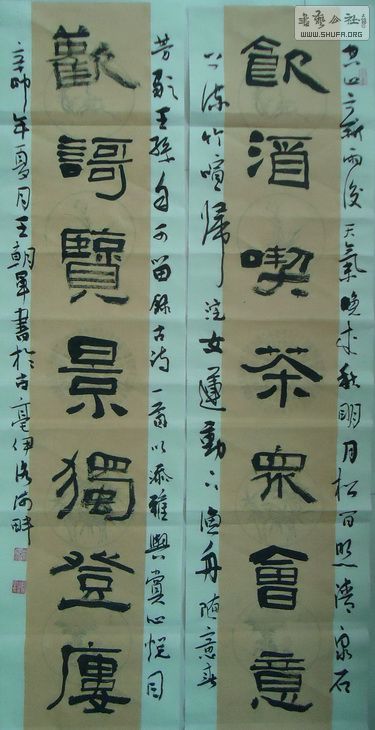 空山新雨後天氣晚来秋明月松间照清泉石
飲酒喫茶衆會意
上流竹喧歸浣女蓮動下漁舟随意春
芳歇王孫自可留錄古诗一首以添雅興賞心悦目
歡謌覽景獨登廔
辛卯年夏月王朝軍書於古亳伊洛河畔
书艺公社
WWW.SHUFA.ORG